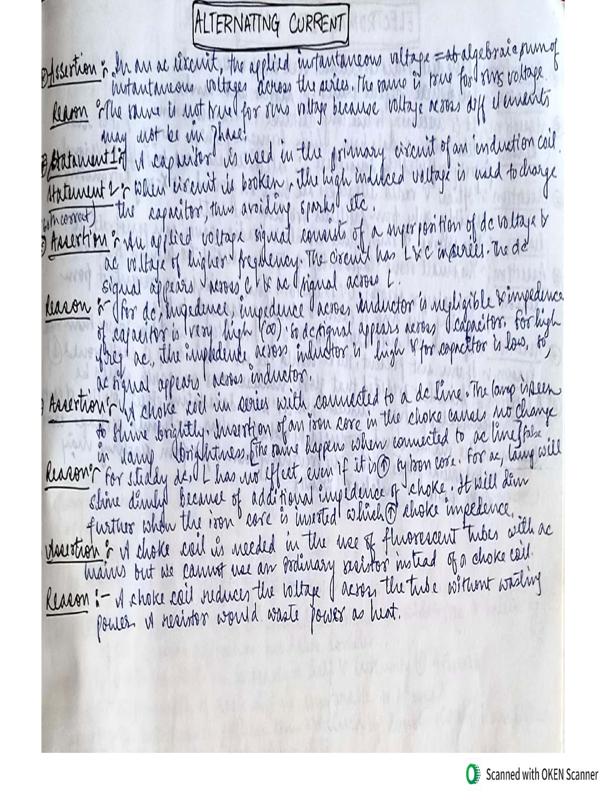 ALTERNATING CURRENT
Assertion :- In an ac circuit, the applied instantaneous voltage = algebraic sum of
instantaneous voltages across the series. The same is true for rms voltage
Reason :- The same is not true for rms voltage because voltage across diff elements
may not be in phase.
Statement 1 :- A capacitor is used in the primary circuit of an induction coil.
Statement 2 :- when circuit is broken, the high induced voltage is used to charge
the capacitor, thus avoiding sparks etc.
Assertion :- An applied voltage signal consists of a superposition of dc voltage &
ac voltage of higher frequency. The circuit has L & C in series. The dc
signal appears across C & ac signal across L.
Reason :- for dc, impedence, impedence across inductor is negligible & impedence
of capacitor is very high (∞) so dc signal appears across capacitor. for high
freq ac, the impedence across inductor is high & for capacitor is low, so,
ac signal appears across inductor.
Assertion :- A choke coil in series with connected to a dc line. The lamp is seen
to shine brightly. Insertion of an iron core in the choke causes no change
in lamp brightness. [The same happens when connected to ac line] false
Reason :- for steady dc, L has no effect, even if it is ↑ by iron core. For ac, lamp will
shine dimly because of additional impedence of choke. It will dim
further when the iron core is inserted which ↑ choke impedence.
Assertion :- A choke coil is needed in the use of fluorescent tubes with ac
mains but we cannot use an ordinary resistor instead of a choke coil.
Reason :- A choke coil reduces the voltage across the tube without wasting
power. A resistor would waste power as heat.
Scanned with OKEN Scanner